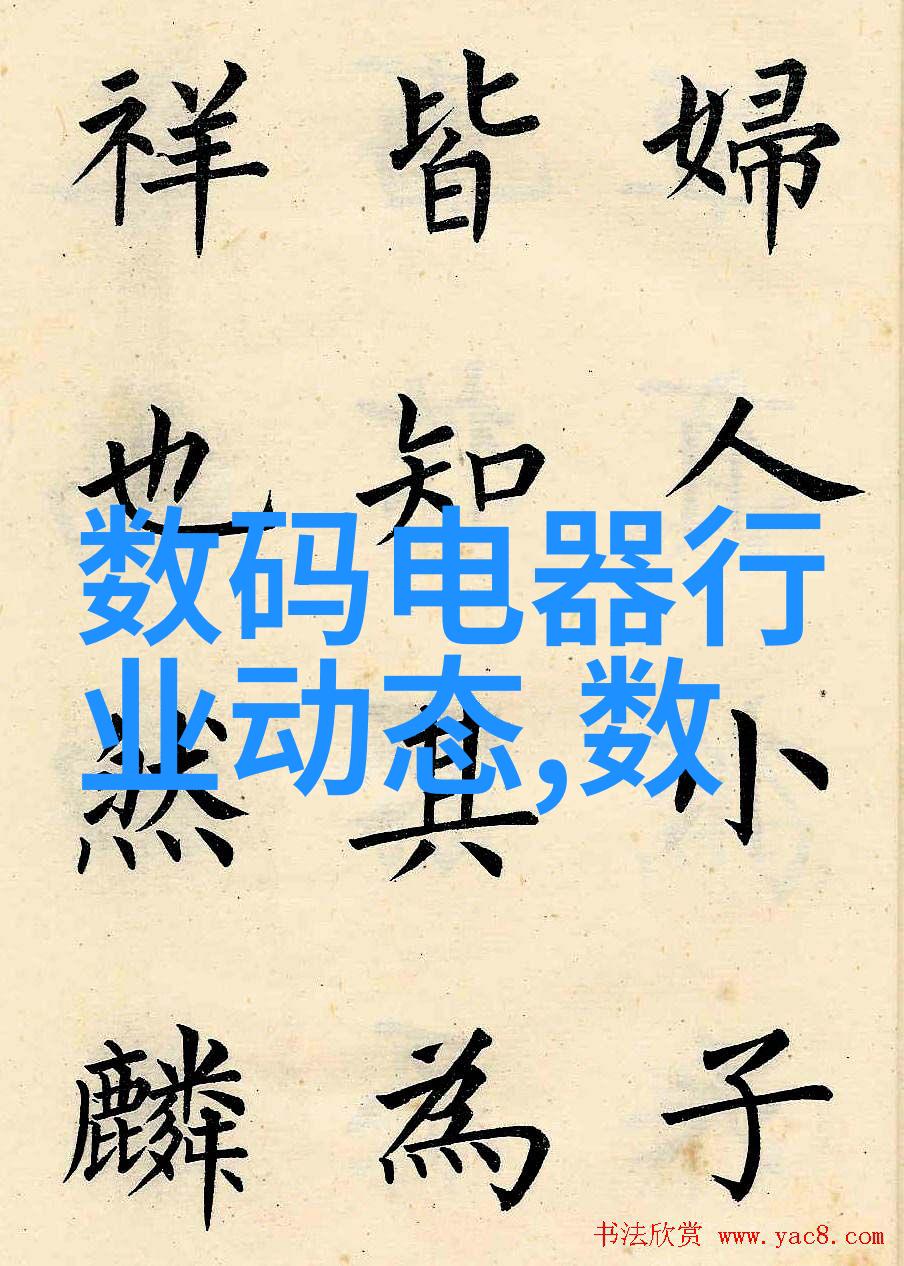 婦人小子
皆知其為
祥也然麟
数码电器行
业动态,数
书法欣赏 www.yac8.com